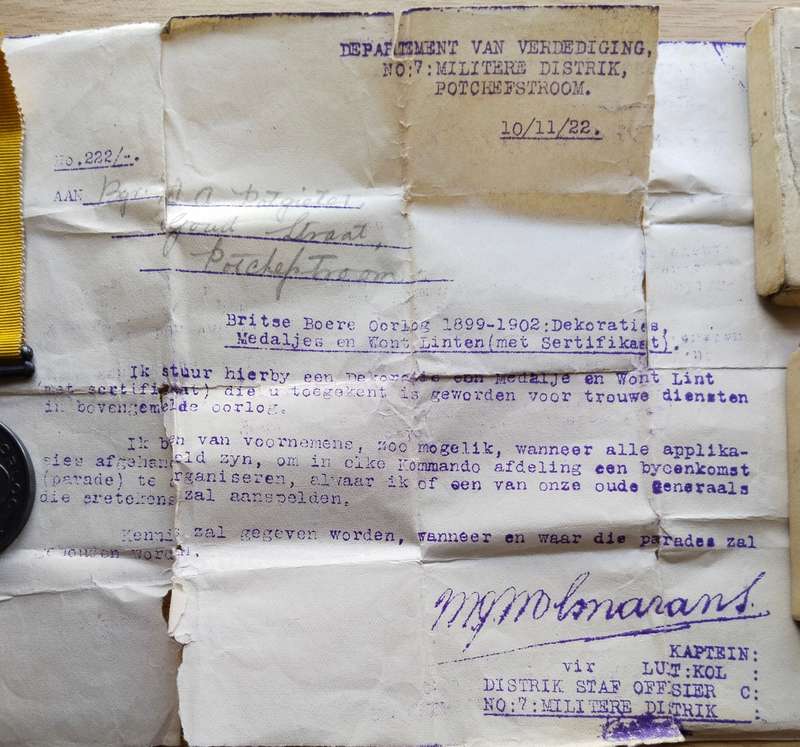 DEPARTEMENT VAN VERDEDIGING,
NO:7:MILITERE DISTRIK,
POTCHEFSTROOM.
10/11/22.
No.222/-.
AAN Potgieter,
Goud Straat,
Potchefstroom
Britse Boere Oorlog 1899-1902:Dekoraties,
Medaljes en Wont Linten(met Sertifikaat).
Ik stuur hierby een Dekoratie een Medalje en Wont Lint
(met sertifikaat) die u toegekent is geworden voor trouwe diensten
in bovengemelde oorlog.
Ik ben van voornemens, zoo mogelik, wanneer alle applika-
sies afgehandeld zyn, om in elke Kommando afdeling een byeenkomst
(parade) te organiseren, alwaar ik of een van onze oude Generaals
die eretekens zal aanspelden.
Kennis zal gegeven worden, wanneer en waar die parades zal
gehouden worden.
KAPTEIN:
vir LUIT:KOL :
DISTRIK STAF OFFISIER C:
NO:7:MILITERE DISTRIK :